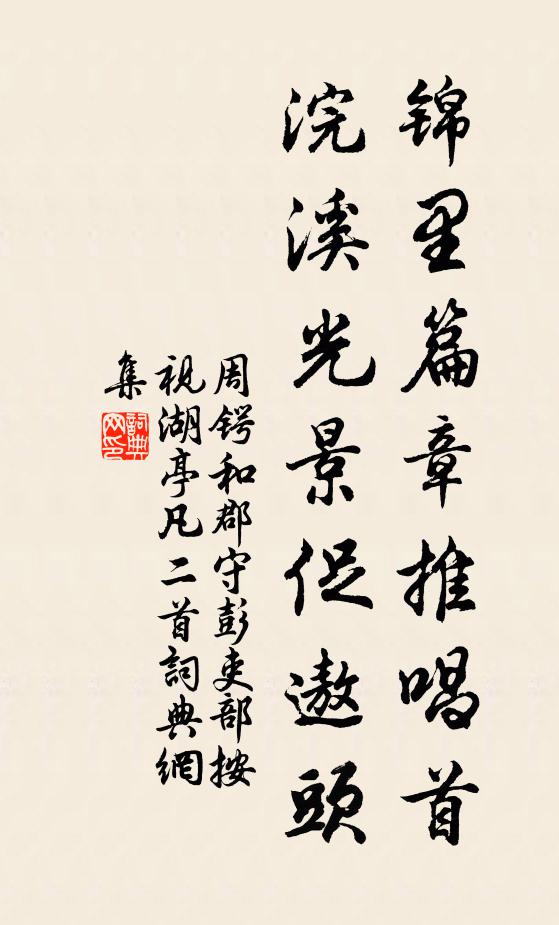 锦里篇章推唱首
浣溪光景促遨頭
周锷和郡守彭吏部按
視湖亭凡二首詞典網
集
詞典
网印